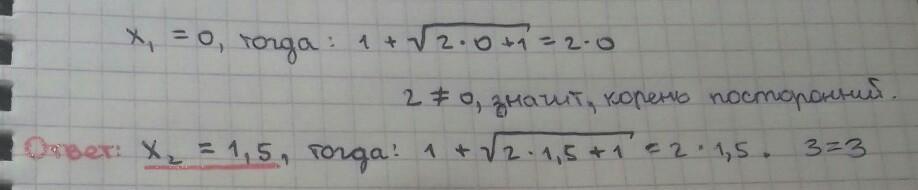 x₁ = 0, тогда: 1 + √(2·0+1) = 2·0
2 ≠ 0, значит, корень посторонний.
Ответ: x₂ = 1,5, тогда: 1 + √(2·1,5+1) = 2·1,5. 3=3